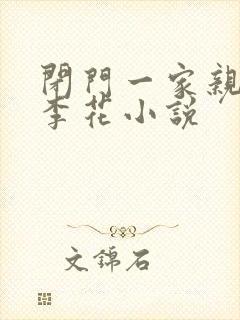 閉門一家親
李花小說
文錦石